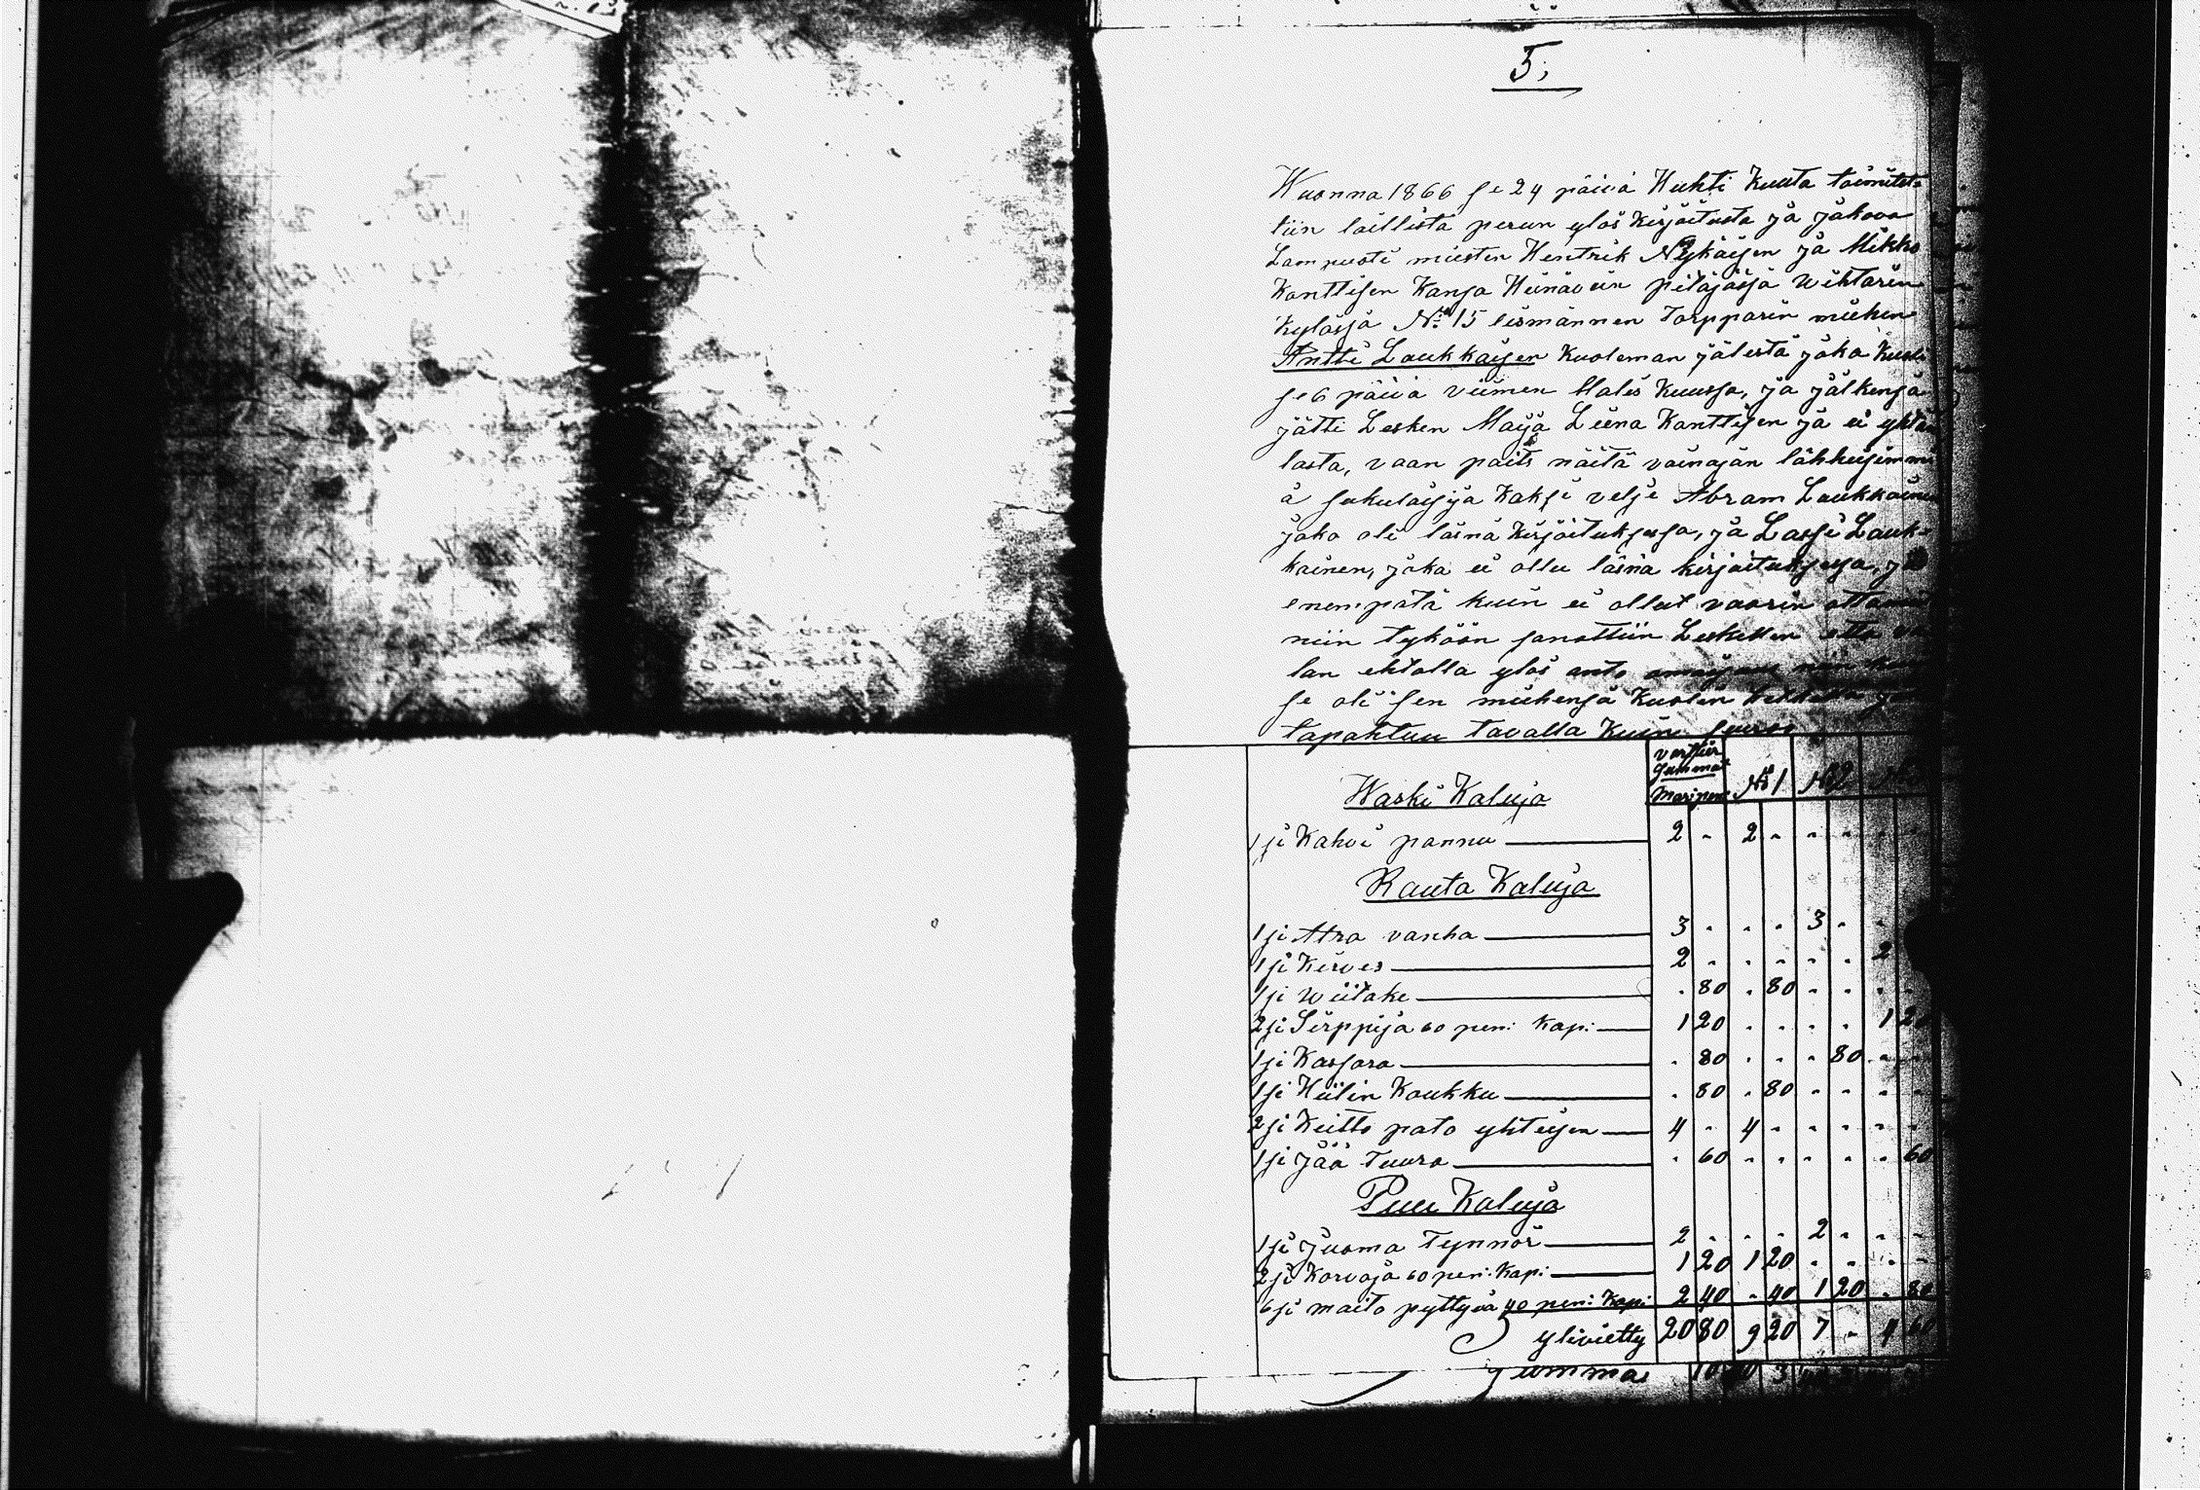 5;
Wuonna 1866 se 24 päivä Huhti Kuuta toimitet-
tiin laillista perun ylös Kirjoitusta ja jakoa
Lampuoti miesten Hentrik Nykäisen ja Mikko
Kanttisen Kansa Heinävein pitäjässä Wihtarin
Kylässä No 15 lismännen Torpparin miehen
Antti Laukkaisen Kuoleman jälestä joka Kuoli
se 6 päivä viimen Malis Kuussa, ja jälkensä
jätti Lesken Maija Liena Kanttisen ja ei yhtän
lasta, vaan paits näitä vainajan lähheisimmi
ä sukulaisija Kaksi velje Abram Laukkainen
joka oli läsnä Kirjoituksessa, ja Lassi Lauk-
kainen, joka ei ollu läsnä kirjoituksessa, ja
enempätä kuin ei ollut vaarin
niin tyköön sanottiin Leskellen että
lan ehtolla ylös anto
se oli sen miehensä Kuolin
tapahtuu tavalla Kuin seuraa
varttier
summat
Mar: pen: No 1 No 2
Waski Kaluja
1 si Kahvi pannu 2 - 2 - - - - -
Rauta Kaluja
1 si Atra vanha 3 - - - 3 - -
1 si Kirves 2 - - - - - 2
1 si Wiitake - 80 - 80 - - - -
2 si Sirppija 60 pen: Kap: 1 20 - - - - 1 20
1 si Kassara - 80 - - - 80 - -
1 si Hiilin Koukku - 80 - 80 - - - -
2 si Keitto pato yhteisen 4 - 4 - - - - -
1 si Jää Tuura - 60 - - - - - 60
Puu Kaluja
1 si Juoma Tynnör 2 - - - 2 - - -
2 si Korvoja 60 pen: Kap: 1 20 1 20 - - - -
6 si maito pyttyvä 40 pen: Kap: 2 40 - 40 1 20 - 80
ylivietty 20 80 9 20 7 - 4 60
Summa